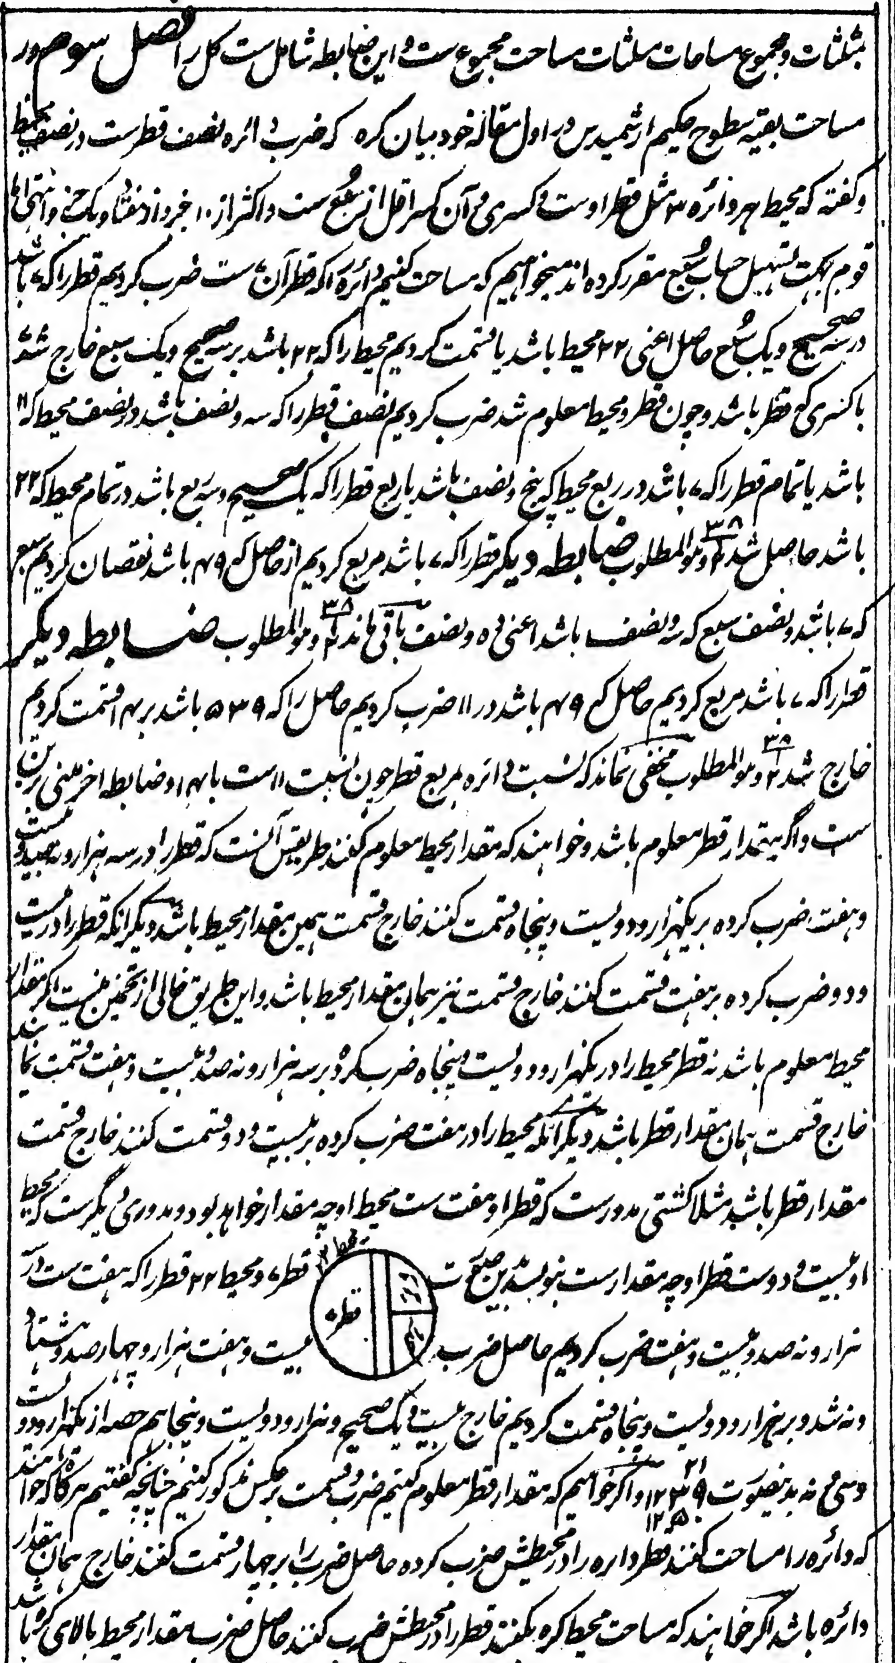 بمثلثات و مجموع مساحات مثلثات مساحت مجموع ست و این ضابطه شامل ست کل را فصل سوم در
مساحت بقیه سطوح حکیم ارشمیدس در اول مقاله خود بیان کرده که ضرب دائره نصف قطرست در نصف محیط
و گفته که محیط هر دائره ۳ مثل قطر اوست و کسری و آن کسر اقل از سبع ست و اکثر از ۱۰ جزو از هفتاد و یک جزو
قوم بجهت تسهیل حساب سبع مقرر کرده اند میخواهیم که مساحت کنیم دائره را که قطر آن ۷ ست ضرب کردیم قطر را که ۷ باشد
در سه صحیح و یک سبع حاصل اعنی ۲۲ محیط باشد یا قسمت کردیم محیط را که ۲۲ باشد بر سه صحیح و یک سبع خارج شد
باکسری که قطر باشد و چون قطر و محیط معلوم شد ضرب کردیم نصف قطر را که سه و نصف باشد در نصف محیط که ۱۱
باشد یا تمام قطر را که ۷ باشد در ربع محیط که پنج و نصف باشد یا ربع قطر را که یک صحیح و سه ربع باشد در تمام محیط که ۲۲
باشد حاصل شد ۳۸ ۲ و هو المطلوب ضابطه دیگر قطر را که ۷ باشد مربع کردیم از حاصل که ۴۹ باشد نقصان کردیم سبع
که ۷ باشد و نصف سبع که سه و نصف باشد اعنی ده و نصف باقی ماند ۳۸ ۲ و هو المطلوب ضابطه دیگر
قطر را که ۷ باشد مربع کردیم حاصل که ۴۹ باشد در ۱۱ ضرب کردیم حاصل را که ۵۳۹ باشد بر ۱۴ قسمت کردیم
خارج شد ۳۸ ۲ و هو المطلوب مخفی نماند که نسبت دائره بمربع قطر چون نسبت ۱۱ ست با ۱۴ و ضابطه اخر مبنی بر این
ست و اگر مقدار قطر معلوم باشد و خواهند که مقدار محیط معلوم کنند طریقش آنست که قطر را در سه هزار و نهصد و بیست
و هفت ضرب کرده بر یکهزار و دو لیست و پنجاه قسمت کنند خارج قسمت همین مقدار محیط باشد دیگر آنکه قطر را در بیست
و دو ضرب کرده بر هفت قسمت کنند خارج قسمت نیز همان مقدار محیط باشد و این طریق خالی از تخمین نیست اگر مقدار
محیط معلوم باشد نه قطر محیط را در یکهزار و دو لیست و پنجاه ضرب کرده بر سه هزار و نه صد و بیست و هفت قسمت نمایند
خارج قسمت همان مقدار قطر باشد دیگر آنکه محیط را در هفت ضرب کرده بر بیست و دو قسمت کنند خارج قسمت
مقدار قطر باشد مثلا کشتی مدورست که قطر او هفت ست محیط او چه مقدار خواهد بود و مدوری دیگرست که محیط
او بیست و دوست قطر او چه مقدارست بنویسند بدین صورت قطر ۷ و محیط ۲۲ قطر را که هفت ست در سه
قطر ۷
هزار و نه صد و بیست و هفت ضرب کردیم حاصل ضرب بیست و هفت هزار و چهار صد و هشتاد
و نه شد و بر هزار و دو لیست و پنجاه قسمت کردیم خارج بیست و یک صحیح و هزار و دو لیست و پنجاهم حصه از یکهزار و دو لیست
و سی و نه بدینصورت ۲۱ ۱۲۳۹ ۱۲۵۰ و اگر خواهیم که مقدار قطر معلوم کنیم ضرب و قسمت بر عکس مذکور کنیم چنانچه گفتیم هرگاه که خواهند
که دائره را مساحت کنند قطر دائره را در محیطش ضرب کرده حاصل ضرب را بر چهار قسمت کنند خارج همان مقدار
دائره باشد اگر خواهند که مساحت محیط کره بکنند قطر را در محیطش ضرب کنند حاصل ضرب مقدار محیط بالای کره باشد